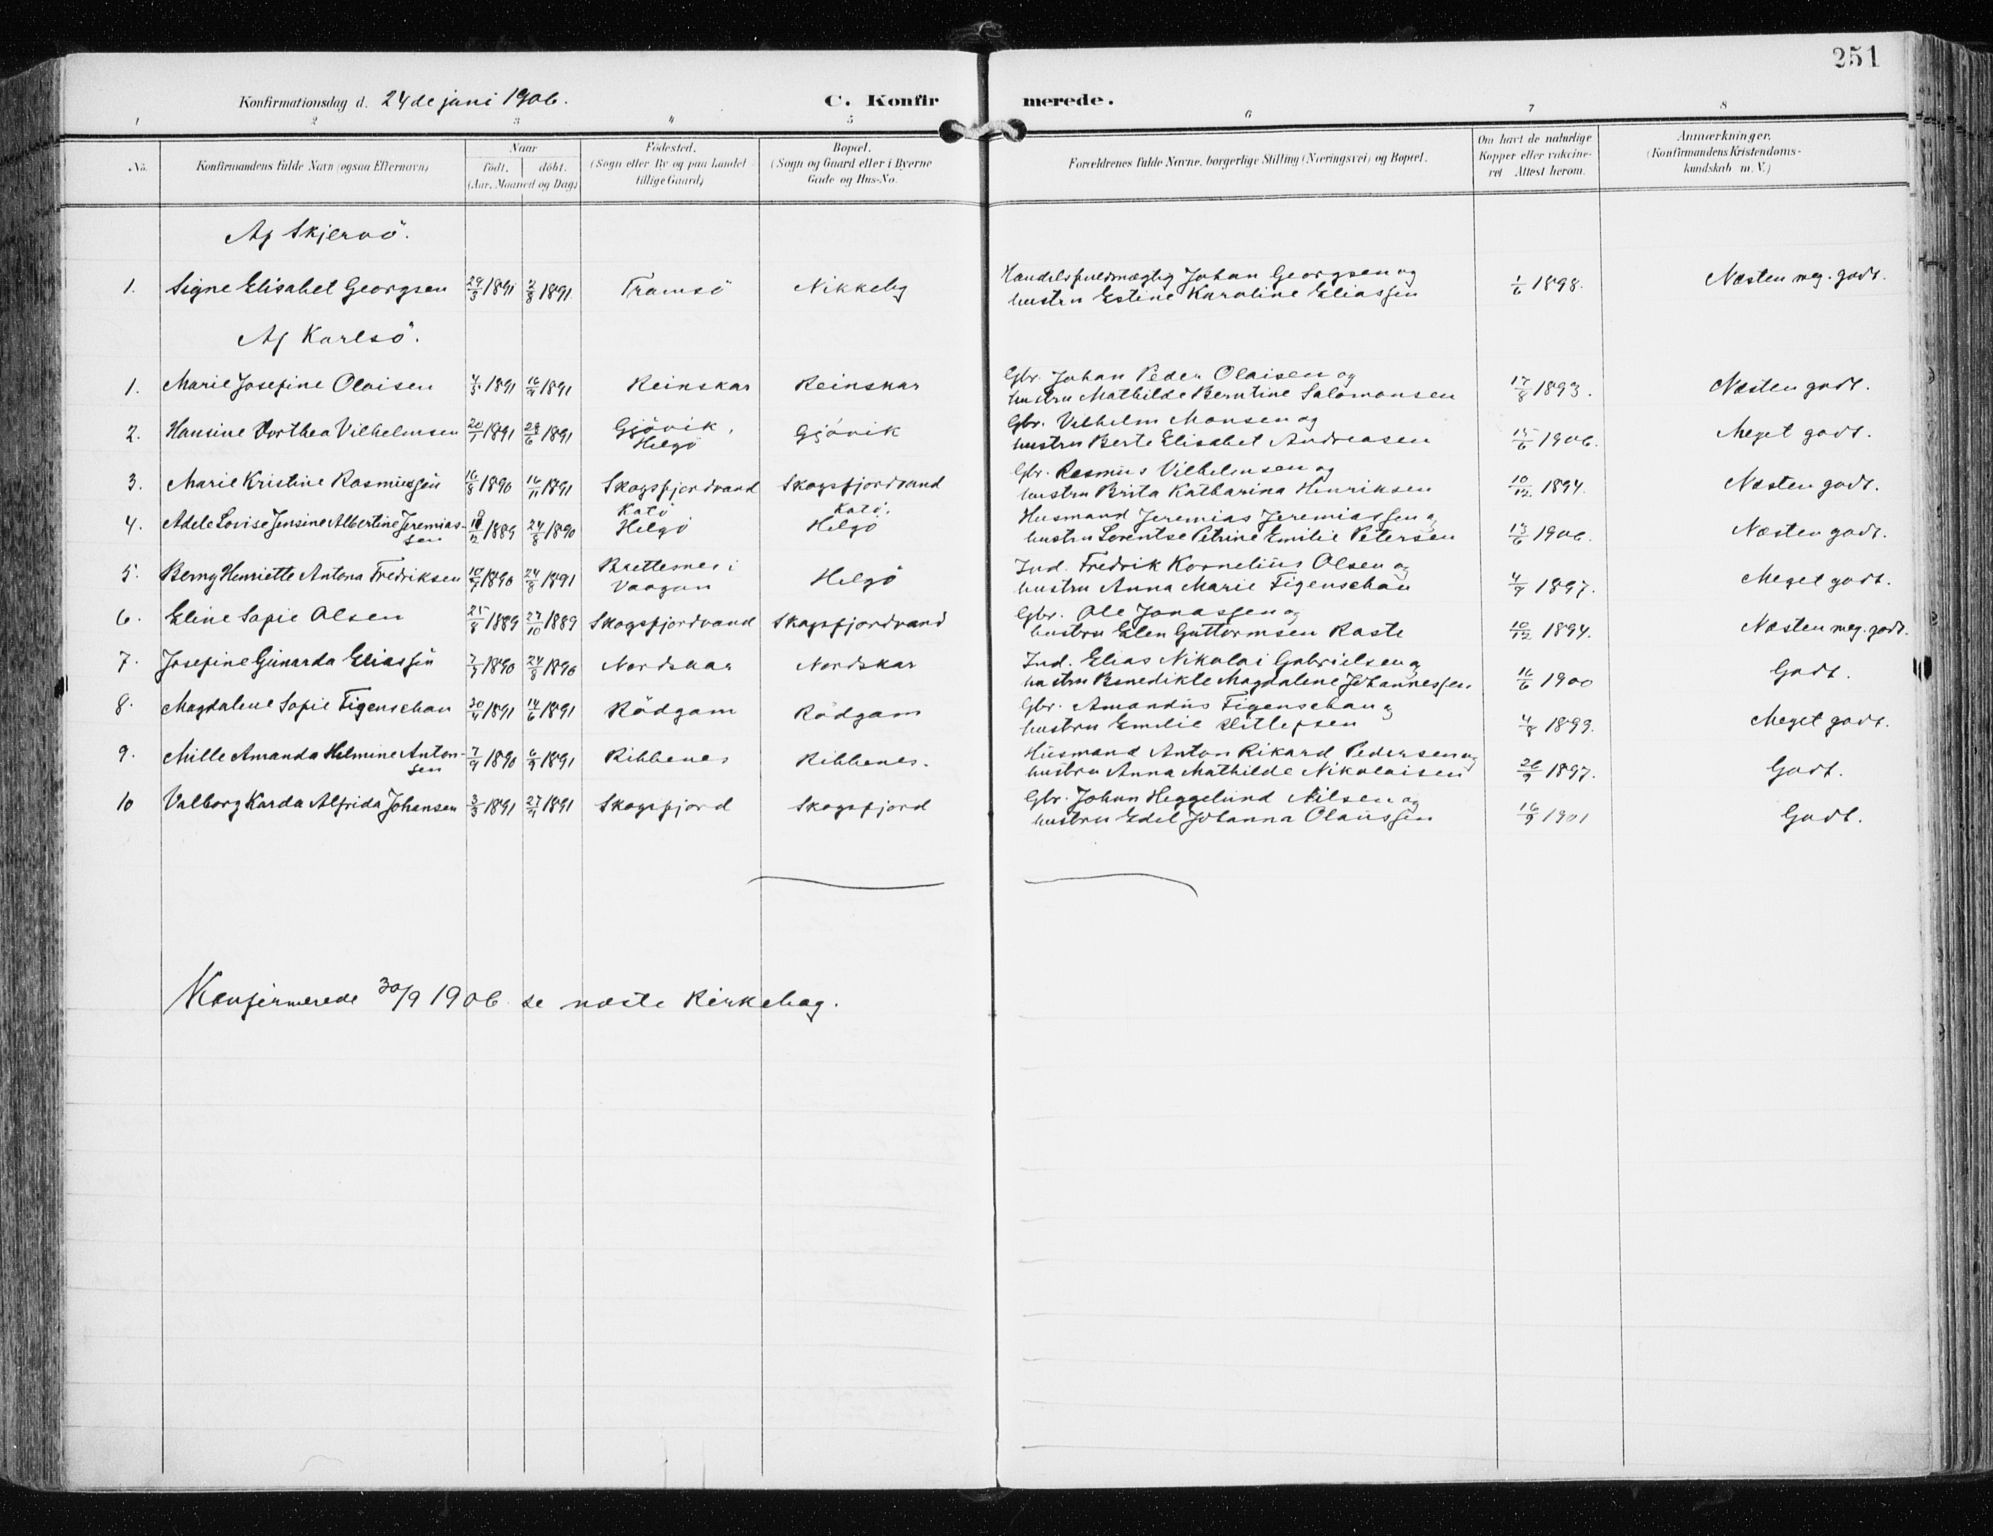 251
Konfirmationsdag d. 24de juni 1906. C. Konfirmerede.
1 2 3 4 5 6 7 8
No. Konfirmandens fulde Navn (ogsaa Efternavn) Naar födt. döbt. (Aar, Maaned og Dag) Födested. (Sogn eller By og paa Landet tillige Gaard) Bopæl. (Sogn og Gaard eller i Byerne Gade og Hus-No. Forældrenes fulde Navne, borgerlige Stilling (Næringsvei) og Bopæl. Om havt de naturlige Kopper eller vaccineret Attest herom. Anmærkninger. (Konfirmandens Kristendomskundskab m. V.)
Af Skjervö.
1. Signe Elisabet Georgsen 1891 1891 Tromsö Nikkeby Handelsfuldmægtig Johan Georgsen og
hustru Estine Karoline Eliassen 1/6 1898. Næsten meg. godt.
Af Karlsö.
1. Marie Josefine Olaisen 1891 1891 Reinskar Reinskar Gbr. Johan Peder Olaisen og
hustru Mathilde Berntine Salomonsen 17/8 1893. Næsten godt.
2. Hansine Dorthea Vilhelmsen 1891 1891 Gjövik, Helgö Gjövik Gbr. Vilhelm Monsen og
hustru Berte Elisabet Andreasen 15/6 1906. Meget godt.
3. Marie Kristine Rasmussen 16/8 1890 16/11 1891 Skogsfjordvand Skogsfjordvand Gbr. Rasmus Vilhelmsen og
hustru Brita Katharina Henriksen 10/12 1894. Næsten godt.
4. Adele Lovise Jensine Albertine Jeremiassen 1889 24/8 1890 Kotö Helgö Kotö. Helgö Husmand Jeremias Jeremiassen og
hustru Lorentse Petrine Emilie Petersen 1906. Næsten godt.
5. Berny Henriette Antona Fredriksen 1890 24/8 1891 Brettesnes i Vaagan Helgö Ind. Fredrik Kornelius Olsen og
hustru Anna Marie Figenschau 1897. Meget godt.
6. Eline Sofie Olsen 25/8 1889 27/10 1889 Skogsfjordvand Skogsfjordvand Gbr. Ole Jonassen og
hustru Elen Guttormsen Raste 10/12 1894. Næsten meg. godt.
7. Josefine Gunarda Eliassen 1890 24/8 1890 Nordskar Nordskar Ind. Elias Nikolai Gabrielsen og
hustru Benedikte Magdalene Johannessen 16/6 1900 Godt.
8. Magdalene Sofie Figenschau 1891 14/6 1891 Rödgam Rödgam Gbr. Amandus Figenschau og
hustru Emilie Ditlefsen 4/8 1899. Meget godt.
9. Mille Amanda Helmine Antonsen 1890 1891 Ribbenes Ribbenes. Husmand Anton Rikard Pedersen og
hustru Anna Mathilde Nikolaisen 1897. Godt.
10 Valborg Karda Alfrida Johansen 3/3 1891 1891 Skogsfjord Skogsfjord Gbr. Johan Heggelund Nilsen og
hustru Edel Johanna Olaussen 16/9 1901 Godt.
Konfirmerede 30/9 1906 se næste Kirkebog.